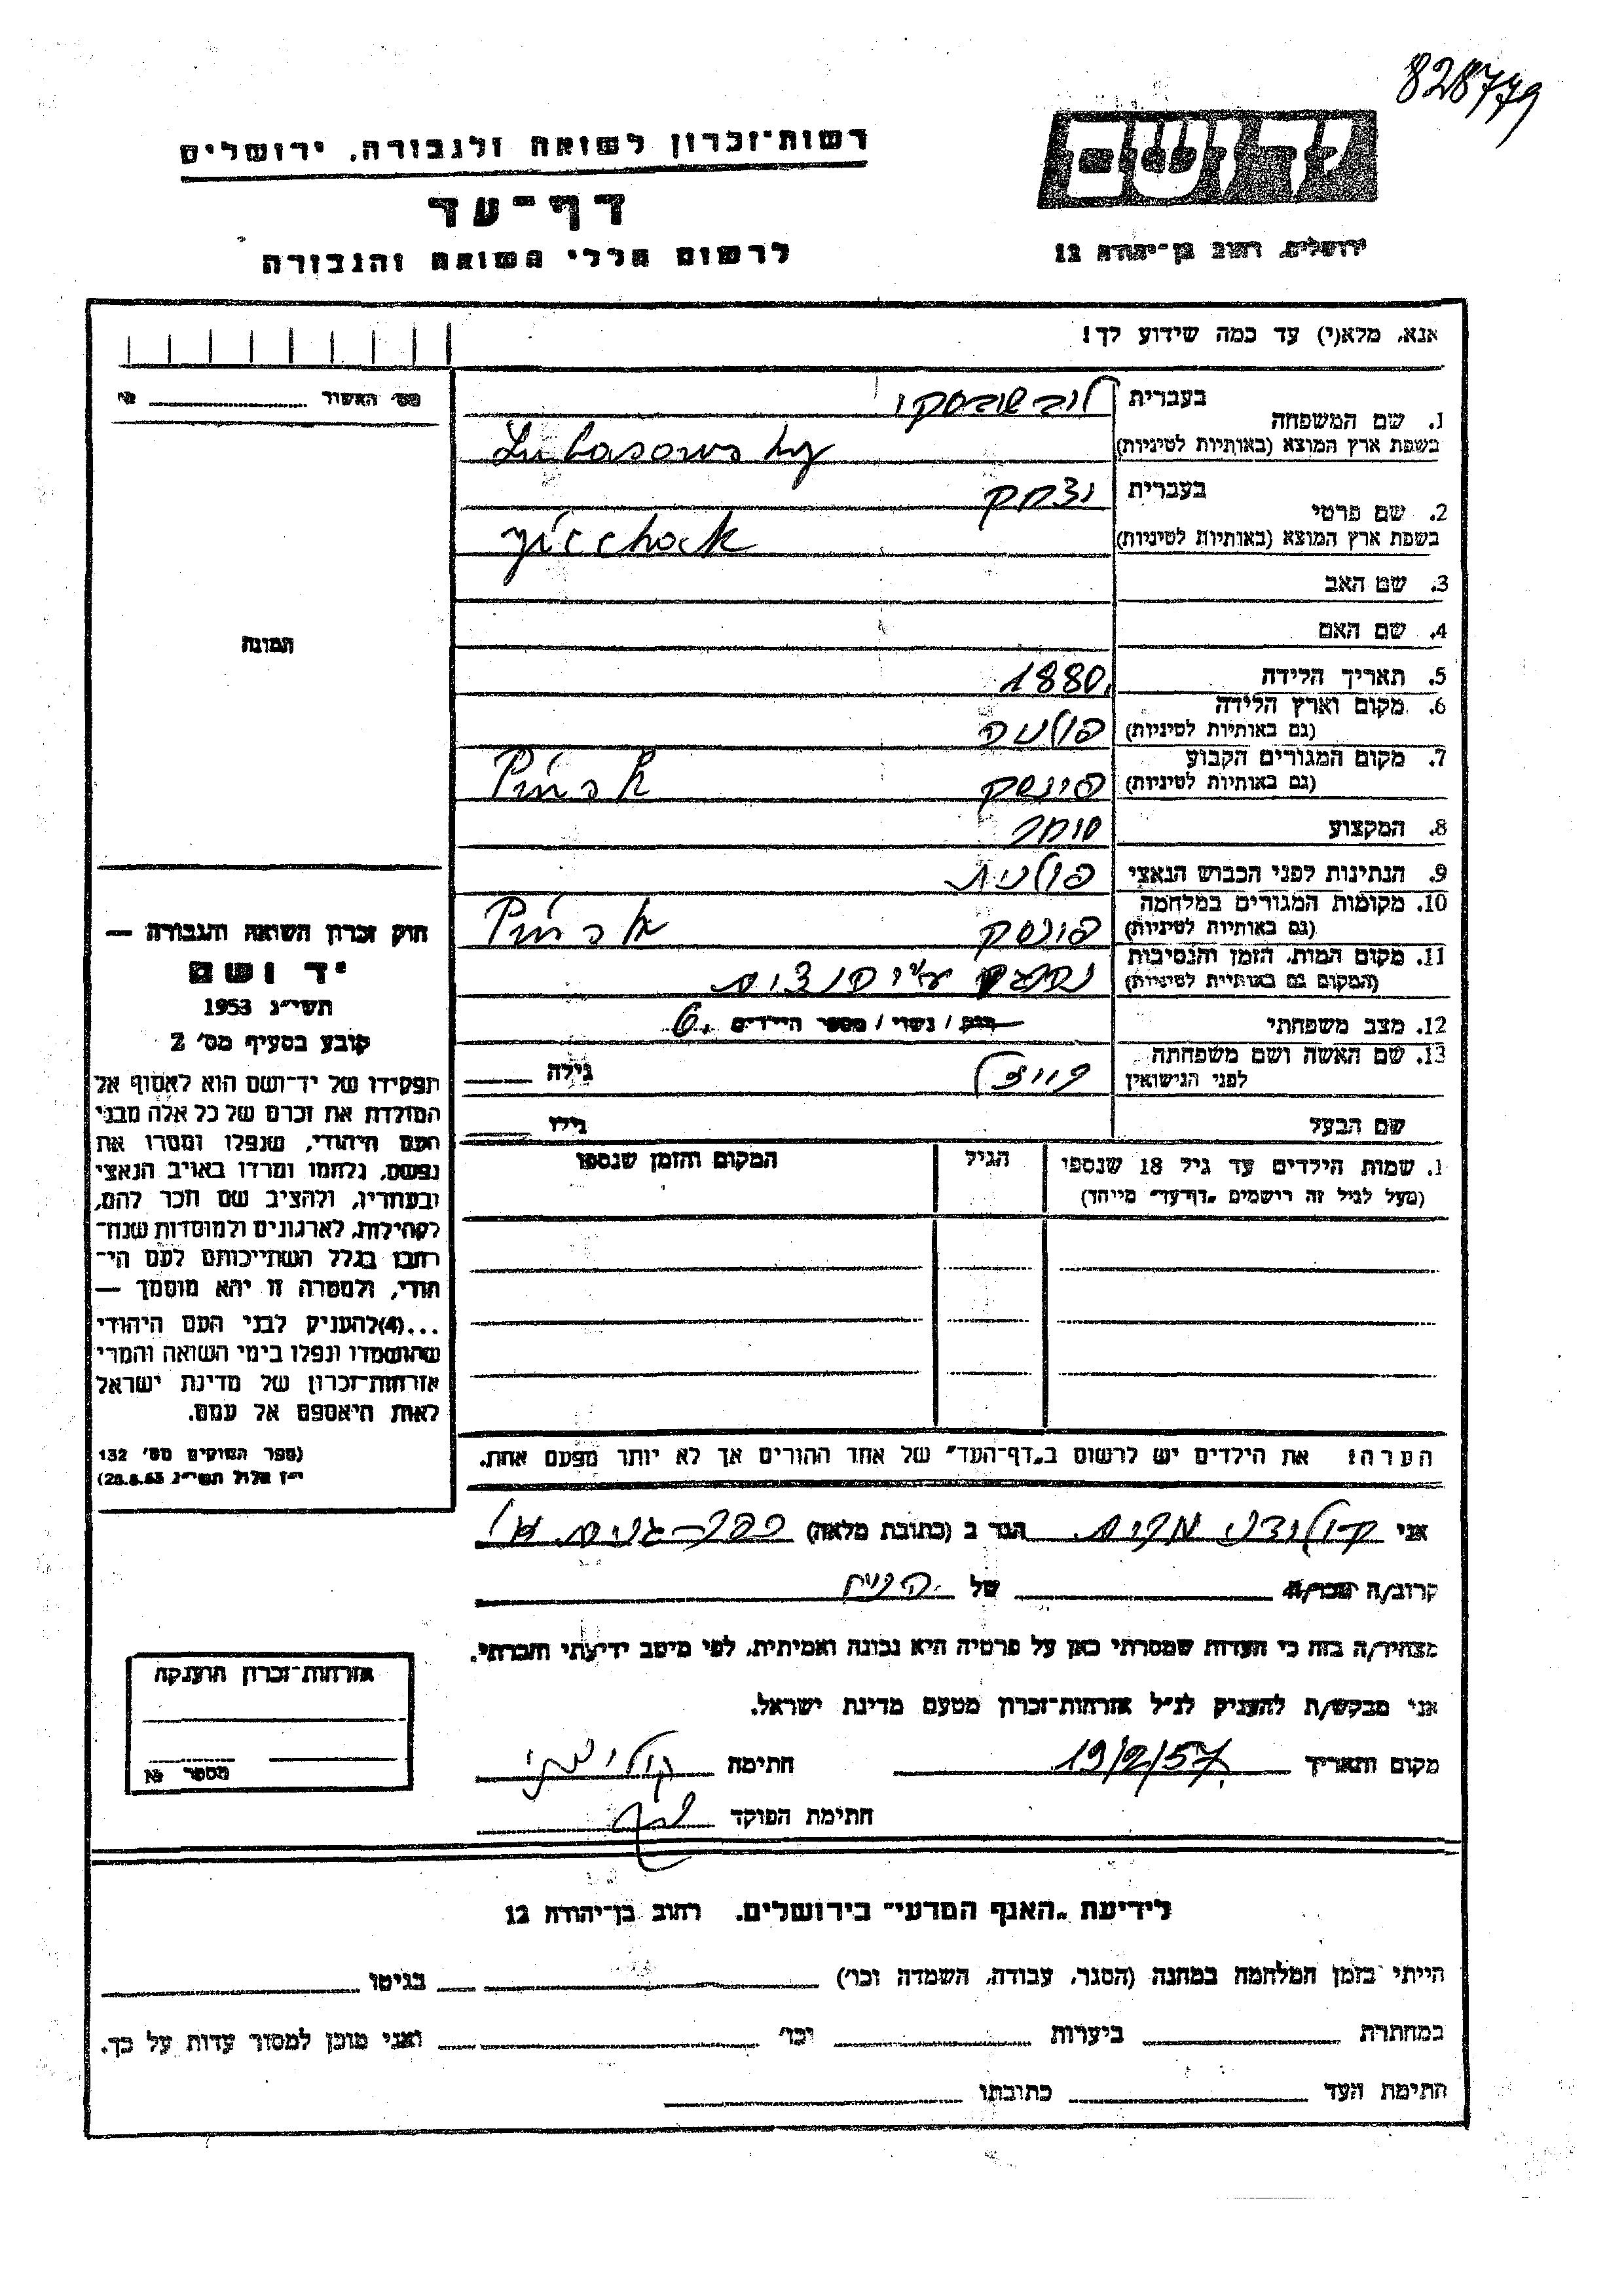 828779
רשות־זכרון לשואה ולגבורה, ירושלים
יד ושם
דף־עד
לרשום חללי השואה והגבורה
ירושלים, רחוב בן־יהודה 12
אנא, מלא(י) עד כמה שידוע לך!
מס׳ האשור
1. שם המשפחה בעברית לובשובסקי
בשפת ארץ המוצא (באותיות לטיניות) Lubasowsky
2. שם פרטי בעברית יצחק
בשפת ארץ המוצא (באותיות לטיניות) yicchok
3. שם האב
4. שם האם
תמונה
5. תאריך הלידה 1880
6. מקום וארץ הלידה
(גם באותיות לטיניות) פולניה
7. מקום המגורים הקבוע
(גם באותיות לטיניות) פינסק Pińsk
8. המקצוע סוחר
9. הנתינות לפני הכבוש הנאצי פולנית
10. מקומות המגורים במלחמה
(גם באותיות לטיניות) פינסק Pińsk
11. מקום המות, הזמן והנסיבות
(המקום גם באותיות לטיניות) ע״י הנצים
12. מצב משפחתי רווק / נשוי / מספר הילדים 6.
13. שם האשה ושם משפחתה
לפני הנישואין גילה
שם הבעל גילו
1. שמות הילדים עד גיל 18 שנספו הגיל המקום והזמן שנספו
(מעל לגיל זה רושמים „דף־עד״ מיוחד)
הערה: את הילדים יש לרשום ב„דף־העד״ של אחד ההורים אך לא יותר מפעם אחת.
חוק זכרון השואה והגבורה —
יד ושם
תשי״ג 1953
קובע בסעיף מס׳ 2
תפקידו של יד־ושם הוא לאסוף אל
המולדת את זכרם של כל אלה מבני
העם היהודי, שנפלו ומסרו את
נפשם, נלחמו ומרדו באויב הנאצי
ובעוזריו, ולהציב שם וזכר להם,
לקהילות, לארגונים ולמוסדות שנח־
רבו בגלל השתייכותם לעם הי־
הודי, ולמטרה זו יהא מוסמך —
...(4)להעניק לבני העם היהודי
שהושמדו ונפלו בימי השואה והמרי
אזרחות־זכרון של מדינת ישראל
לאות היאספם אל עמם.
(ספר החוקים מס׳ 132
י״ז אלול תשי״ג 28.8.53)
אני מרים הגר ב (כתובת מלאה) כפר־גנים א׳
קרוב/ה מכר/ה של
מצהיר/ה בזה כי העדות שמסרתי כאן על פרטיה היא נכונה ואמיתית, לפי מיטב ידיעתי והכרתי.
אני מבקש/ת להעניק לנ״ל אזרחות־זכרון מטעם מדינת ישראל.
מקום ותאריך 19/2/57 חתימה
חתימת הפוקד
אזרחות־זכרון הוענקה
מספר
לידיעת „האגף המדעי״ בירושלים, רחוב בן־יהודה 12
הייתי בזמן המלחמה במחנה (הסגר, עבודה, השמדה וכו׳) בגיטו
במחתרת ביערות וכו׳ ואני מוכן למסור עדות על כך.
חתימת העד כתובתו